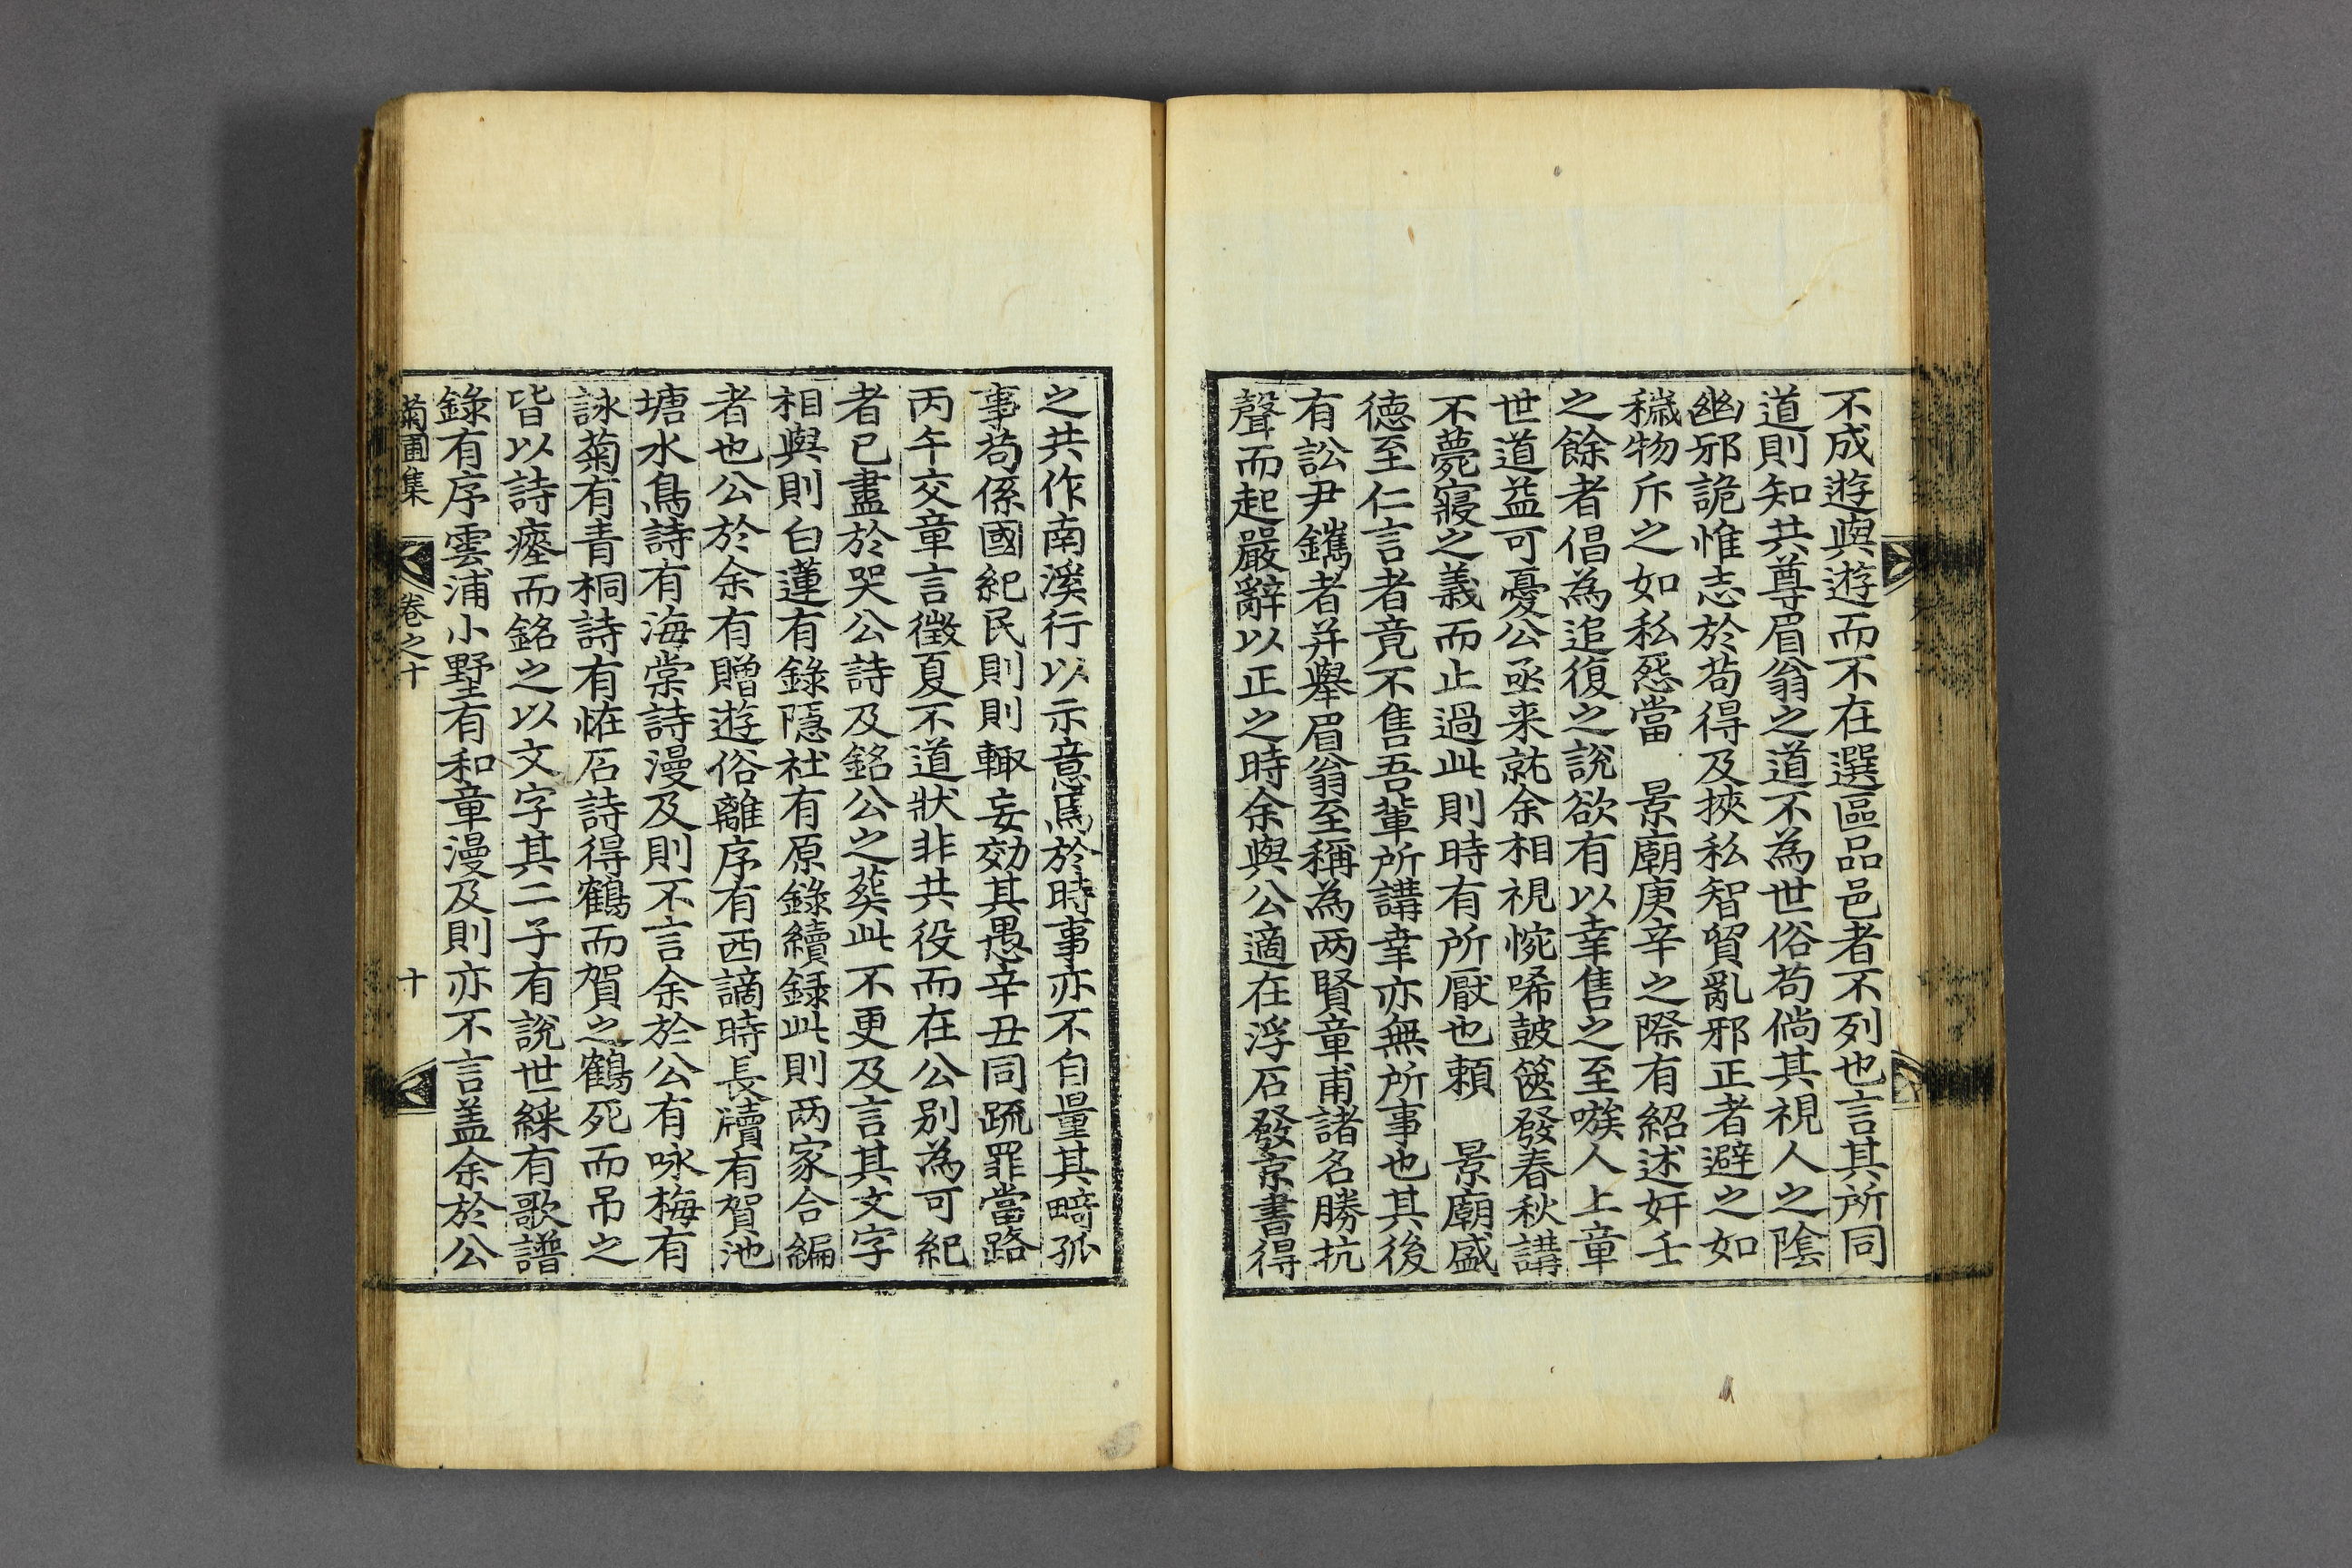 不成遊與遊而不在選區品邑者不列也言其所同
道則知共尊眉翁之道不為世俗苟倘其視人之陰
幽邪詭惟志於苟得及挾私智貿亂邪正者避之如
穢物斥之如私怨當 景廟庚辛之際有紹述奸壬
之餘者倡為追復之說欲有以幸售之至嗾人上章
世道益可憂公亟来就余相視惋唏鼓篋發春秋講
不薨寢之義而止過此則時有所厭也賴 景廟盛
德至仁言者竟不售吾輩所講幸亦無所事也其後
有訟尹鑴者并舉眉翁至稱為两賢童甫諸名勝抗
聲而起嚴辭以正之時余與公適在浮石發京書得
之共作南溪行以示意焉於時事亦不自量其畸孤
事苟係國紀民則則輙妄効其愚辛丑同䟽罪當路
丙午交章言徵夏不道狀非共役而在公别為可紀
者已盡於哭公詩及銘公之葬此不更及言其文字
相與則白蓮有錄隱社有原錄續録此則两家合編
者也公於余有贈遊俗離序有西謫時長牘有賀池
塘水鳥詩有海棠詩漫及則不言余於公有咏梅有
詠菊有青桐詩有恠石詩得鶴而賀之鶴死而吊之
皆以詩瘞而銘之以文字其二子有說世綵有歌譜
錄有序雲浦小墅有和章漫及則亦不言盖余於公
菊圃集 卷之十 十